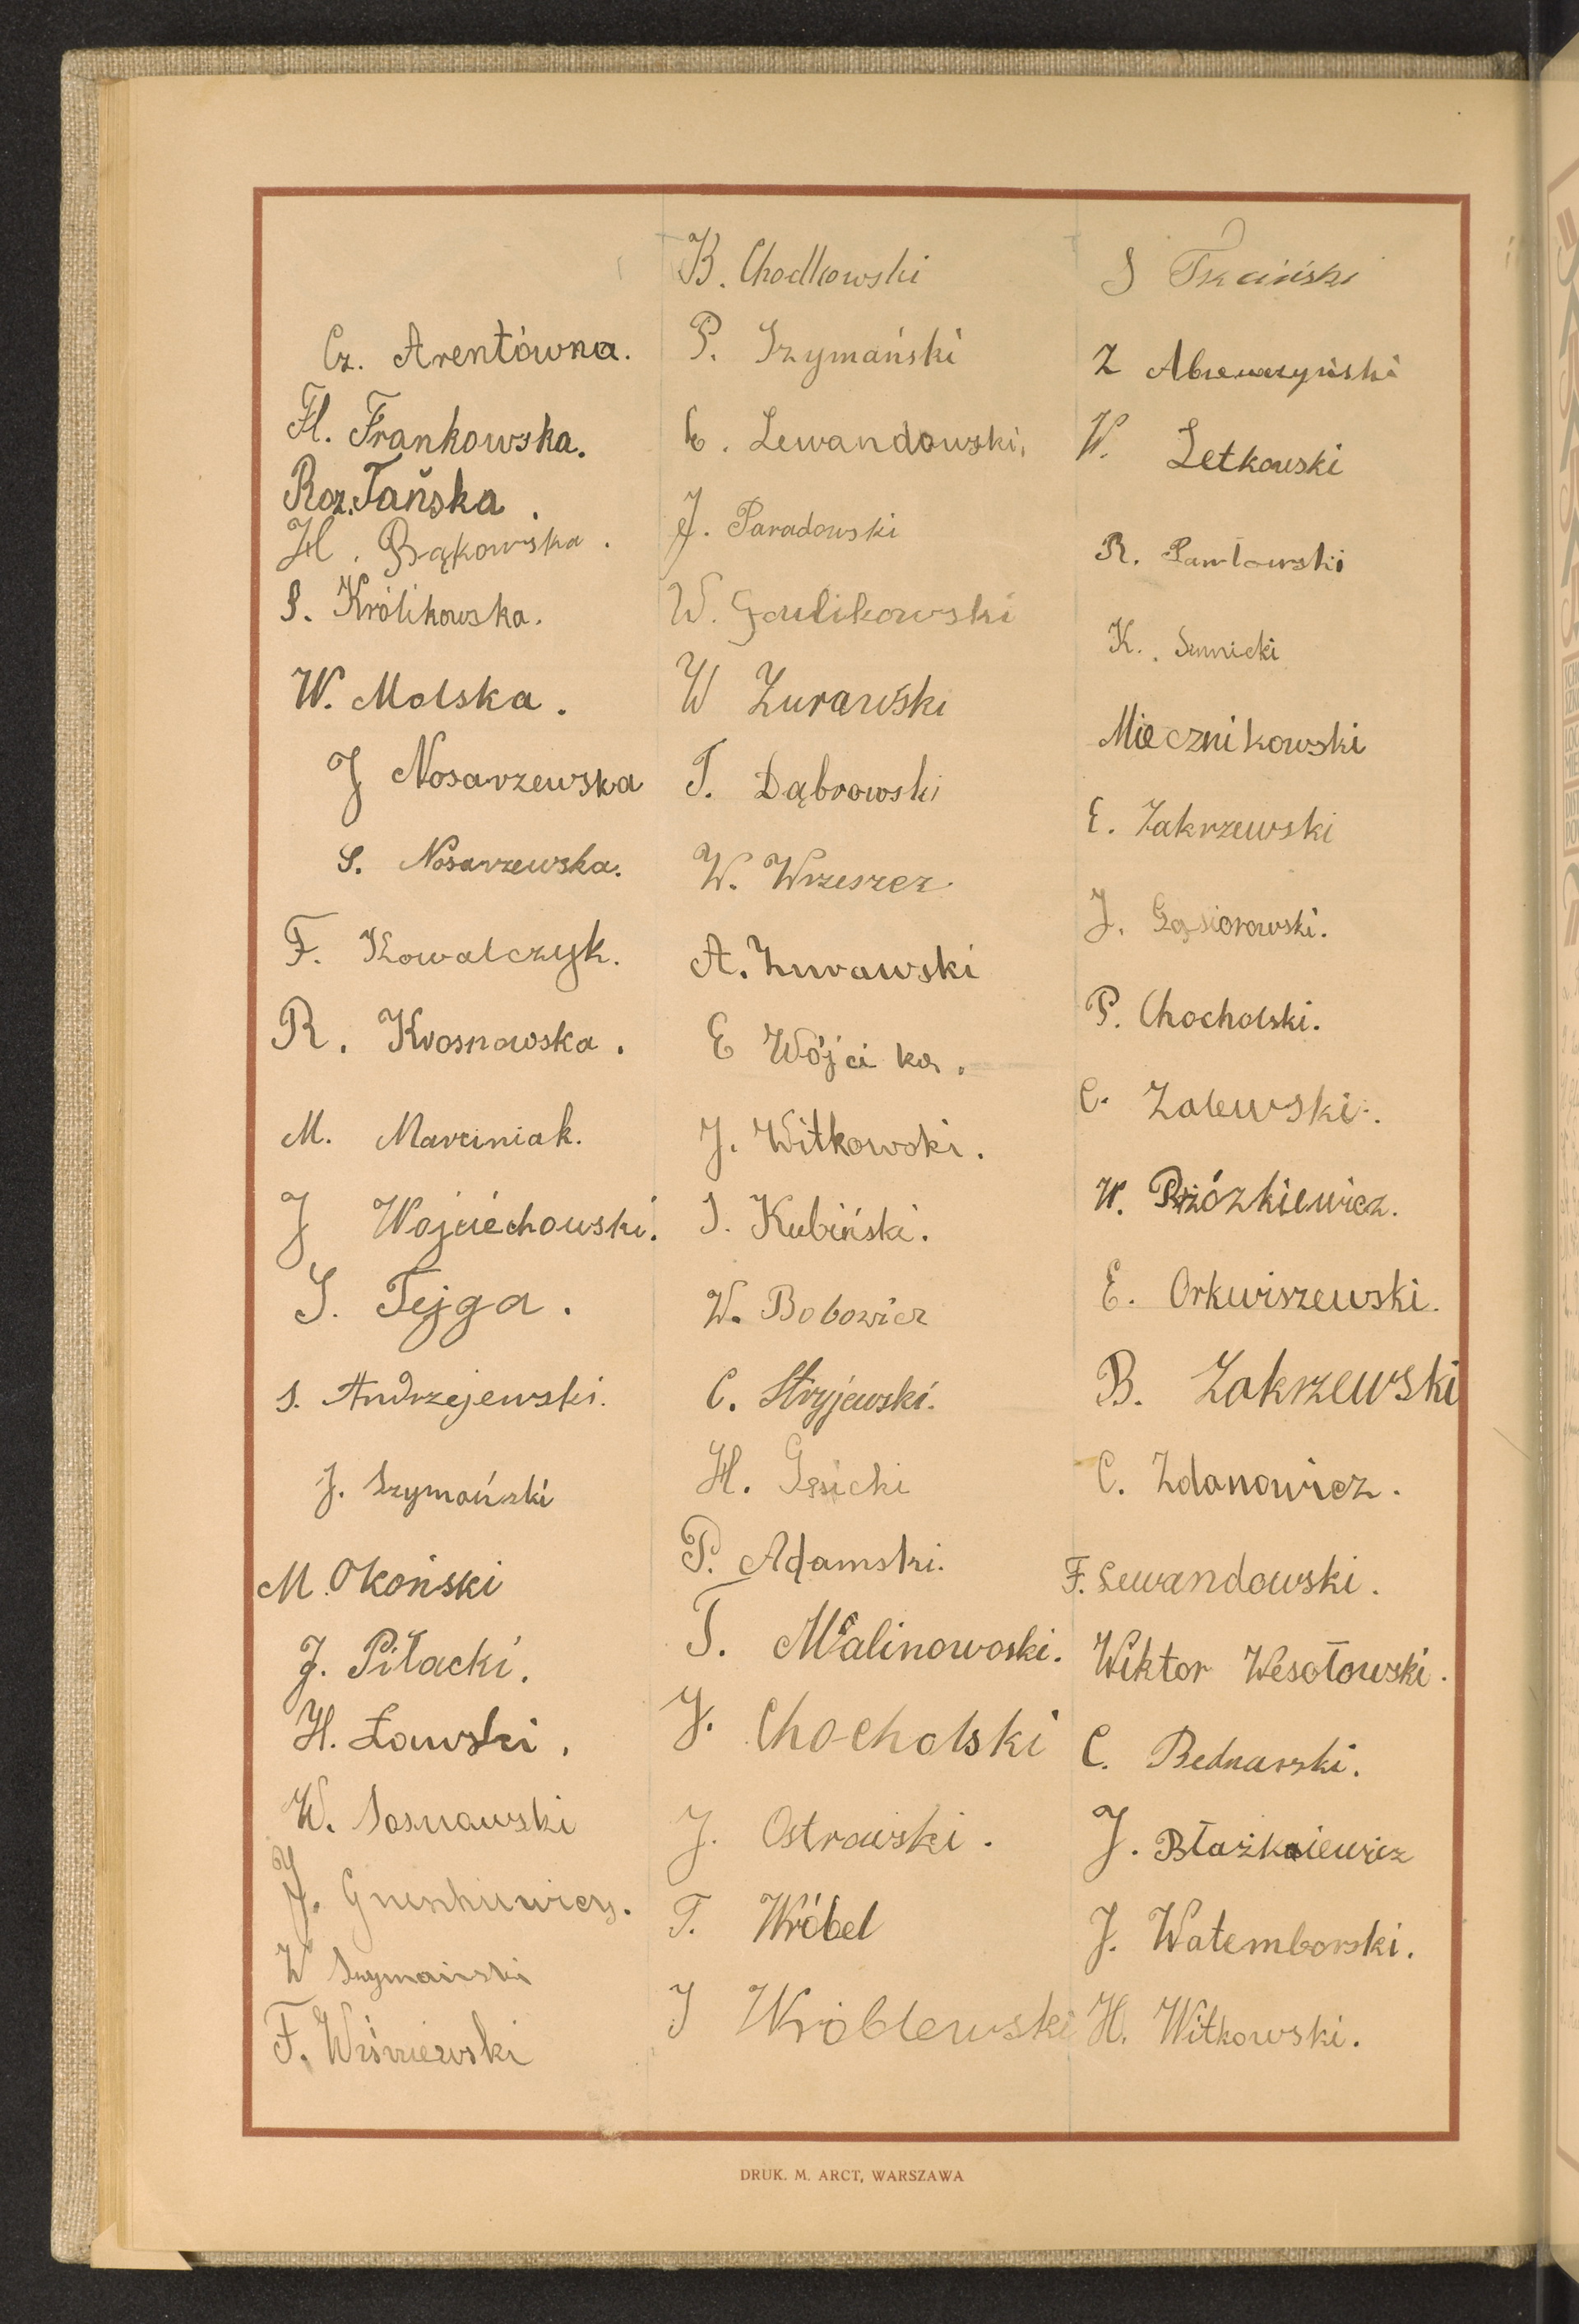 Cz. Arentówna.
Fl. Frankowska.
Roz. Tańska.
H. Bąkowska.
S. Królikowska.
W. Molska.
J Nosarzewska
S. Nosarzewska.
F. Kowalczyk.
R. Krosnowska.
M. Marciniak.
J Wojciechowski.
S. Tejga.
S. Andrzejewski.
J. Szymański
M. Okoński
J. Piłacki.
H. Ławski.
W. Sosnowski
J.
W Szymański
F. Wiśniewski
B. Chodkowski
P. Szymański
E. Lewandowski.
J. Paradowski
W. Gaulikowski
W Zurawski
T. Dąbrowski
W. Wrzeszcz
A. Zurawski
E Wójcika.
J. Witkowski.
S. Kubiński.
W. Bobowicz
C. Stryjewski.
H. Gęsicki
P. Adamski.
T. Malinowski.
J. Chocholski
J. Ostrowski.
T. Wróbel
J Wróblewski
S Trzciński
Z
W. Letkowski
R. Pawłowski
K. Sumicki
Miecznikowski
E. Zakrzewski
J. Gąsiorowski.
P. Chocholski.
C. Zalewski.
W. Brzózkiewicz.
E. Orkwiszewski.
B. Zakrzewski
C. Zdanowicz.
F. Lewandowski.
Wiktor Wesołowski.
C. Bednarski.
J. Błażkiewicz
J. Watemborski.
H. Witkowski.
DRUK. M. ARCT, WARSZAWA